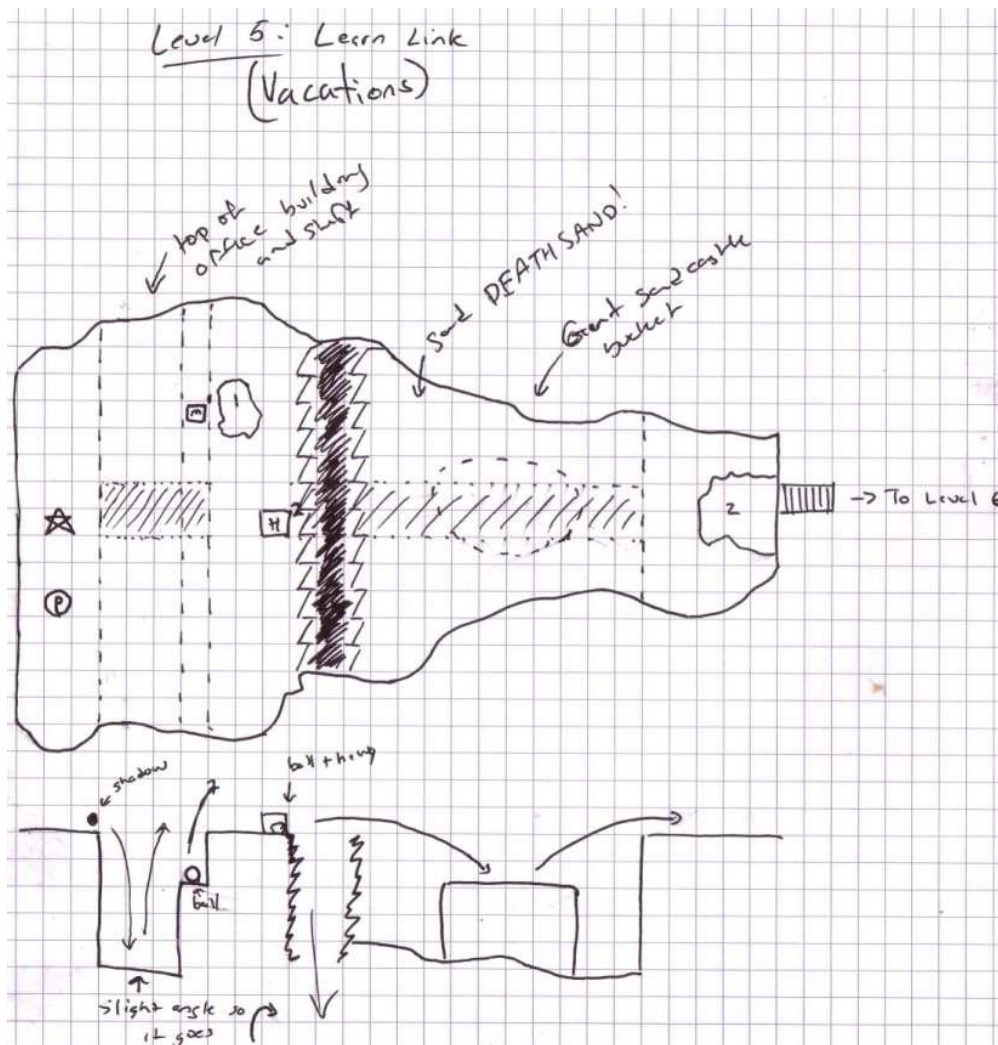 Level 5: Learn Link
(Vacations)
top of
office building
and shaft
Sand DEATH SAND!
Giant Sandcastle
bucket
1
2
-> To Level 6
P
shadow
ball
slight angle so
it goes